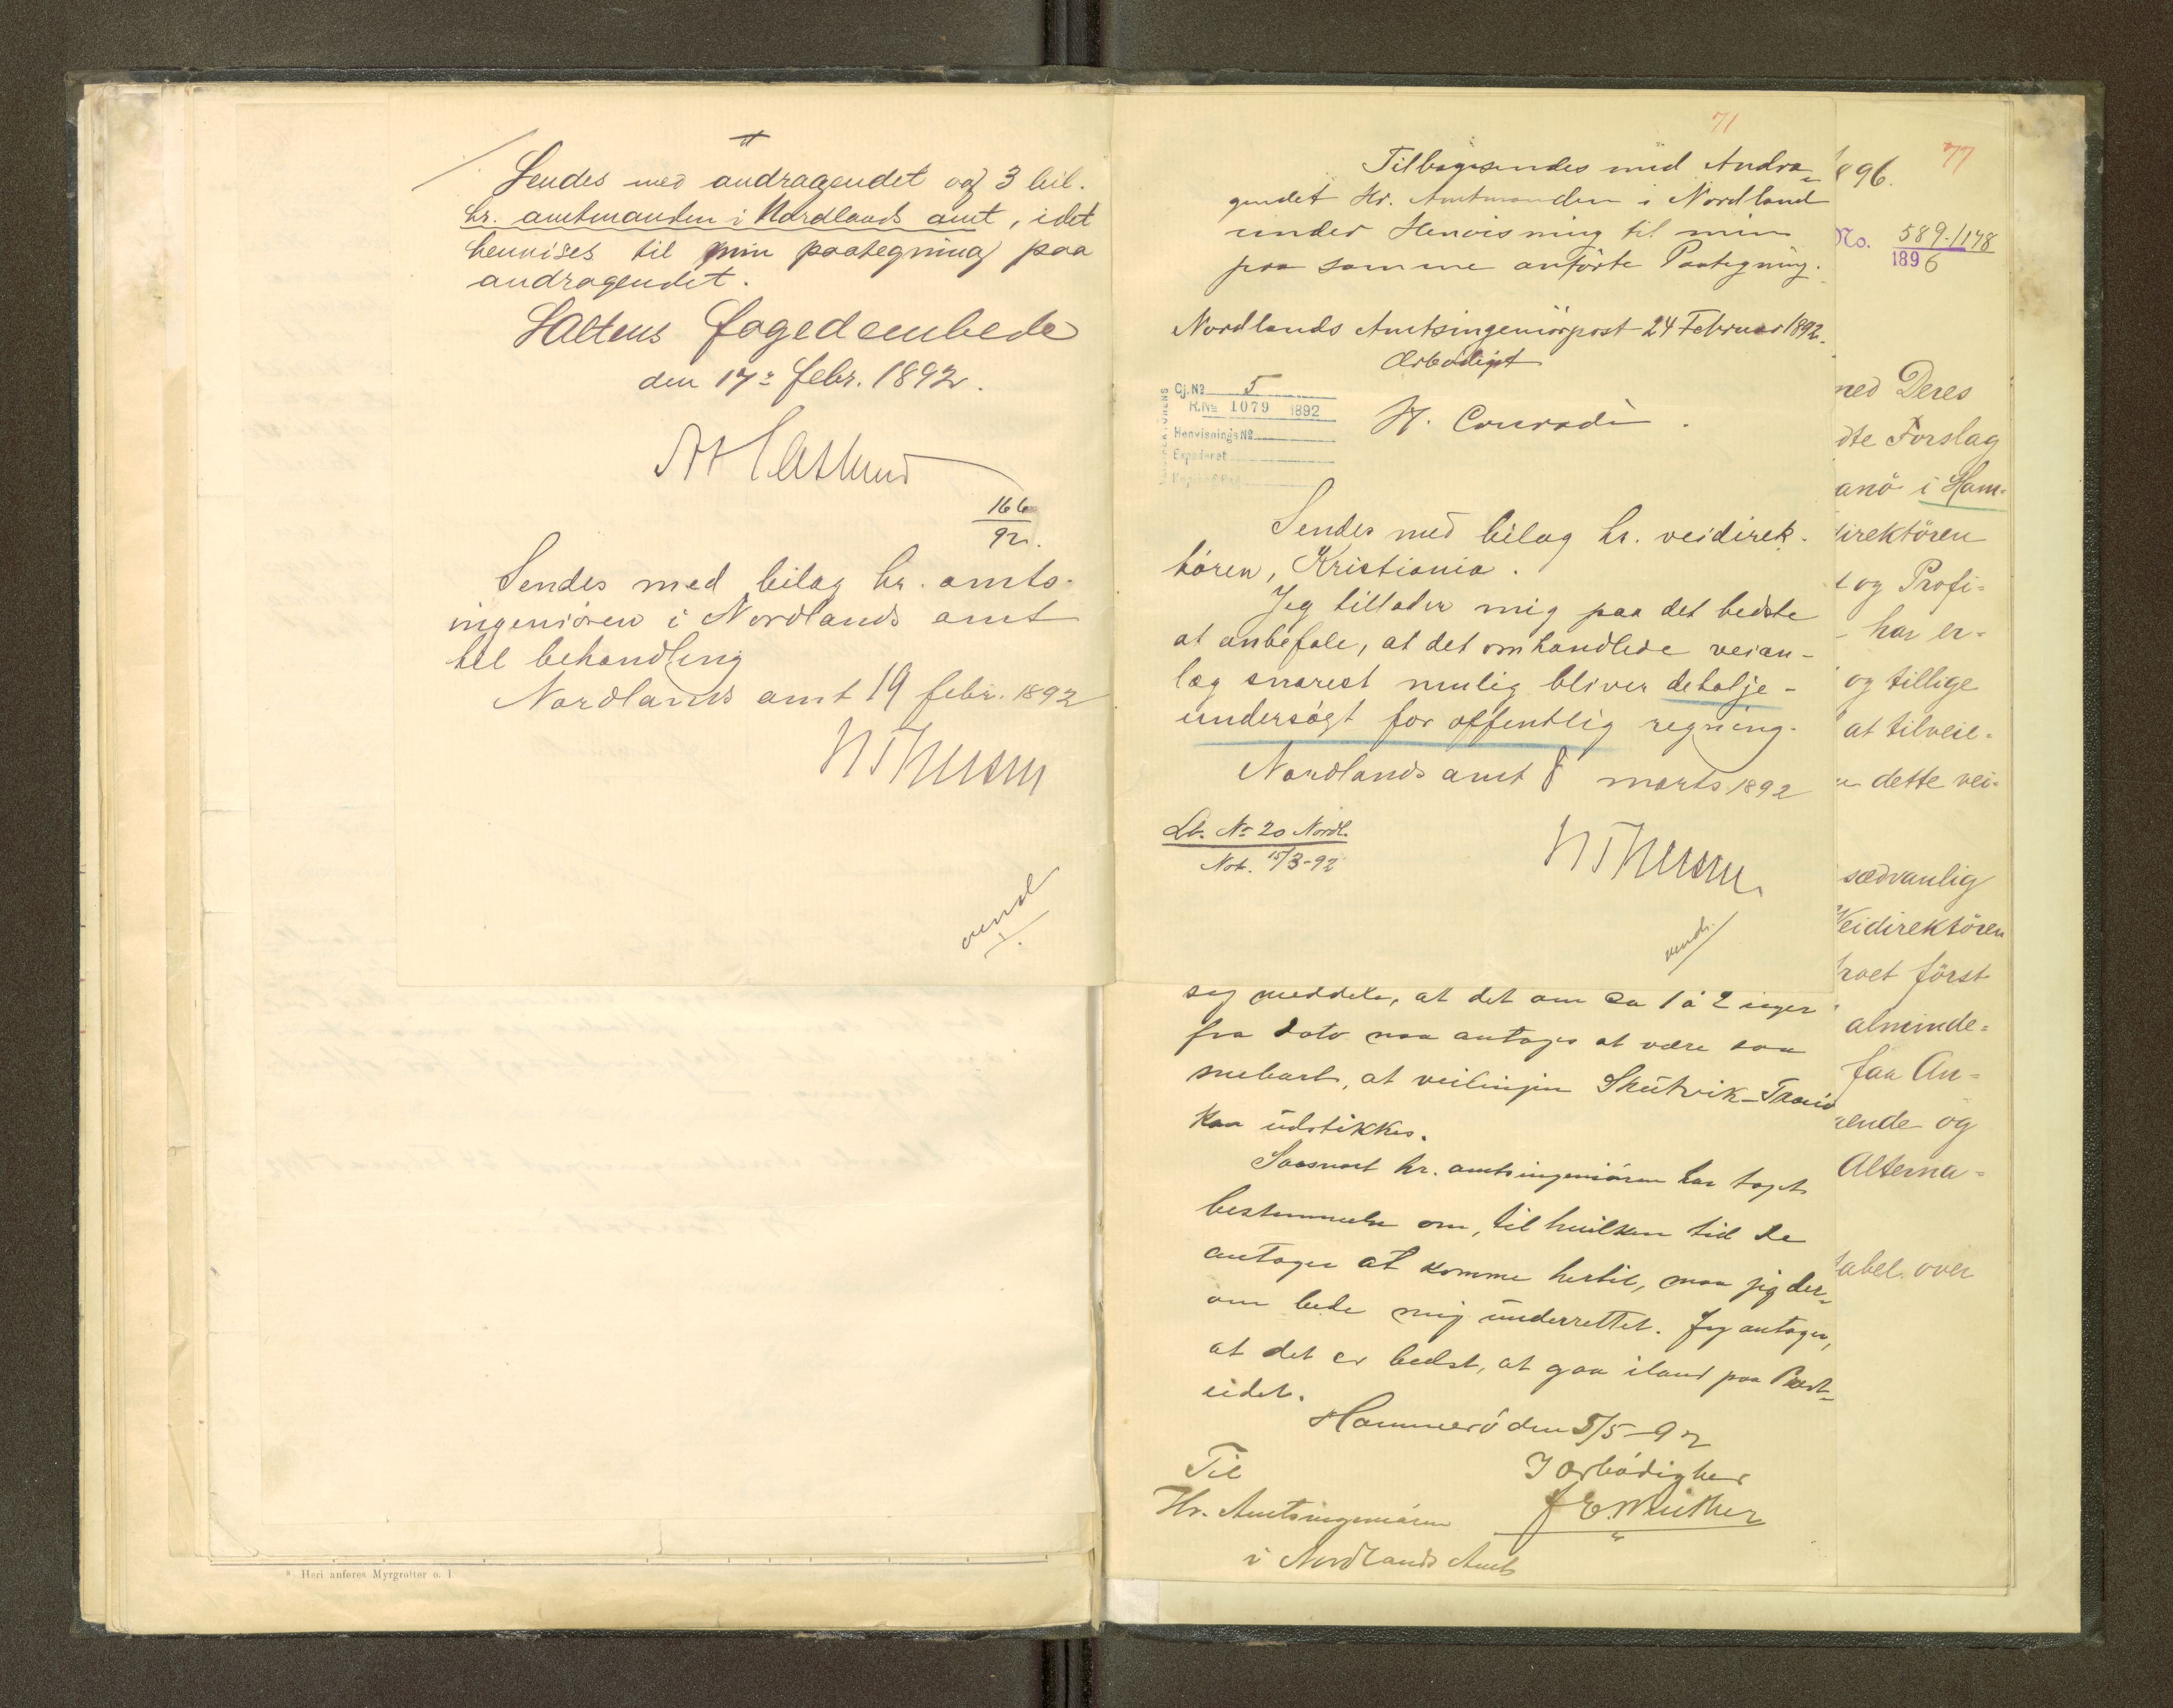 Sendes med andragendet og 3 bil.
hr. amtmanden i Nordlands amt, idet
henvises til min paategning paa
andragendet.
Saltens fogedembede
den 17de febr. 1892.
166
92.
Sendes med bilag hr. amts-
ingeniören i Nordlands amt
til behandling
Nordlands amt 19 febr. 1892
vend!
* Heri anföres Myrgrøfter o. l
71
Tilbagesendes med Andra-
gendet Hr. Amtmanden i Nordland
under Henvisning til min
paa samme anförte Paategning.
Nordlands Amtsingeniörpost 24 Februar 1892.
Ærbødigst
H. Conradi.
Cj. No 5
R. No 1079 1892
Henvisnings No
Expederet
Sendes med bilag hr. veidirek-
tören, Kristiania.
Jeg tillader mig paa det bedste
at anbefale, at det omhandlede veian-
læg snarest mulig bliver detalje-
undersögt for offentlig regning.
Nordlands amt 8 marts 1892
Lb. No 20 Nordl.
Not. 15/3-92
vend!
meddele, at det om ca 1 à 2 uger
fra dato maa antages at være saa
snebart, at veilinjen Skutvik-
kan udstikkes.
Saasnart hr. amtsingeniören har taget
bestemmelse om, til hvilken tid De
antager at komme hertil, maa jeg der-
om bede mig underrettet. Jeg antager,
at det er bedst, at gaa iland paa
eidet.
Hammerö den 5/5-92
Til
Hr. Amtsingeniören
i Nordlands Amt
Ærbödighed
77
896.
No. 589.1178
1896
med Deres
dte Forslag
anö i Ham-
direktören
t og Profi-
har er-
og tillige
at tilveie-
dette vei-
sædvanlig
Veidirektören
först
alminde-
faa An-
ende og
Alterna-
abel over